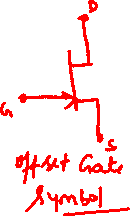 D
G
S
offset Gate
Symbol